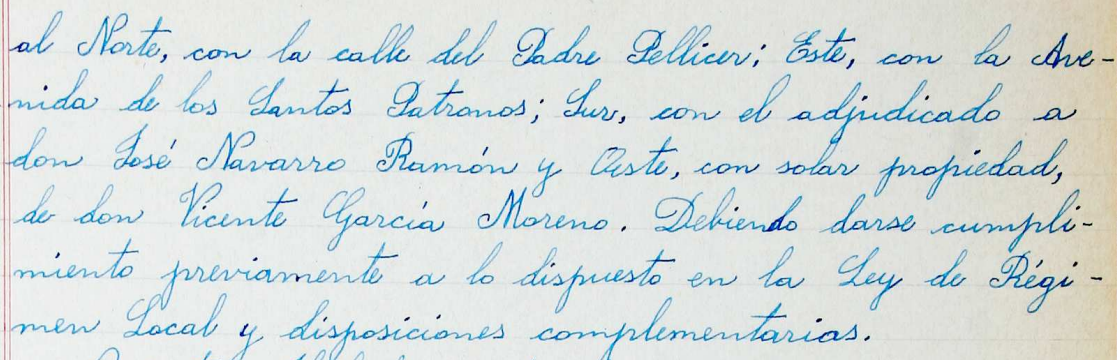 al Norte, con la calle del Padre Pellicer; Este, con la Ave-
nida de los Santos Patronos; Sur, con el adjudicado a
don José Navarro Ramón y Oeste, con solar propiedad,
de don Vicente García Moreno. Debiendo darse cumpli-
miento previamente a lo dispuesto en la Ley de Régi-
men Local y disposiciones complementarias.